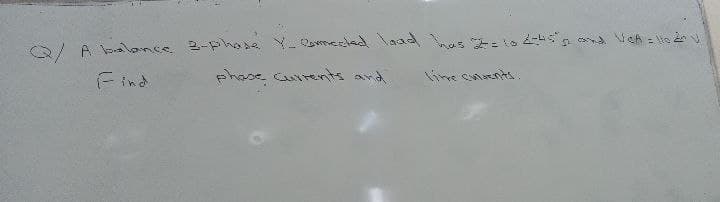 Q/ A balance 3-phase Y-connected load has Z=10∠-45°Ω and VCA=110∠ V
Find phase currents and line currents.